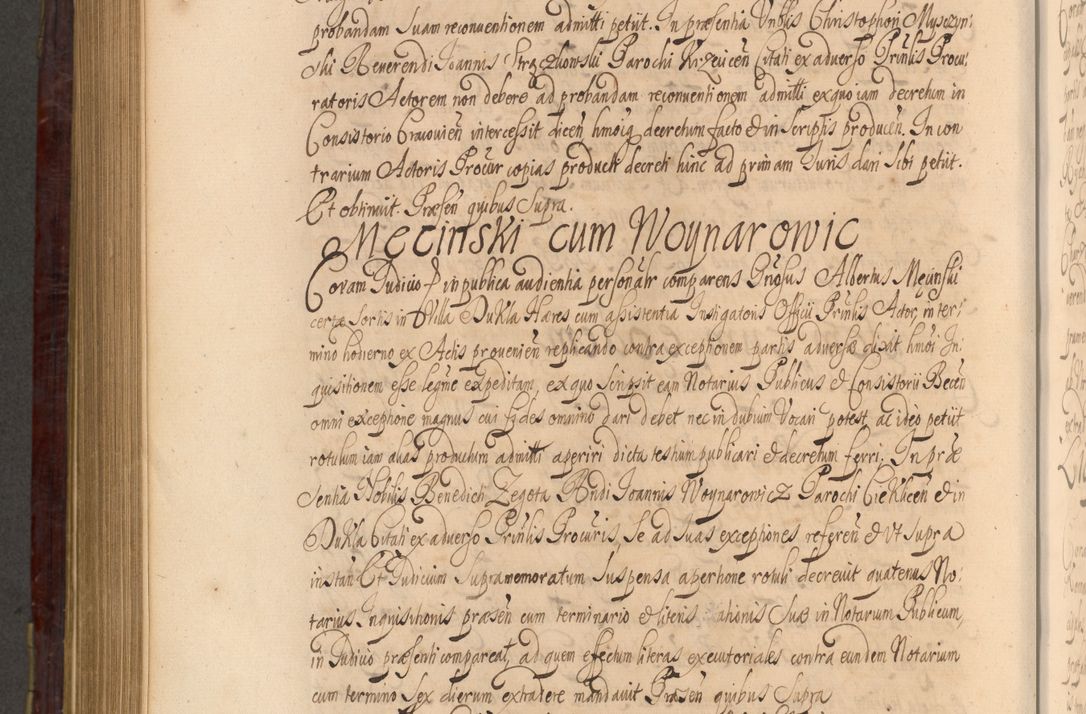 probandam Suam reconventionem admitti petiit. In præsentia Vnblis Christophori Mysczyn:
ski Reverendi Joannis Strączkowski Parochi Krzeiicen Citati ex adverso Prinlis Procu:
ratoris Actorem non debere ad probandam reconventionem admitti ex quo iam decretum in
Consistorio Cracovien intercessit dicen hmoig decretum facto & in Scriptis producen. In con
trarium Actoris Procur copias produci decreti hinc ad primam Juris dari sibi petiit.
Et obtinuit. Præsen quibus Supra.
Męcinski cum Woynarowic
Coram Judicio & in publica audientia personalr comparens Gnosus Albertus Męcinski
certæ Sortis in Villa Dukla Hæres cum assistentia Instigatoris Officii Prinlis Actor, in ter:
mino hodierno ex Actis provenien replicando contra exceptionem partis adversæ dixit hmoi In
quisitionem esse legme expeditam, ex quo Scripsit eam Notarius Publicus & Consistorii Becen
omni exceptione magnus cui fides omnino dari debet nec in dubium Vocari potest, ac ideo petiit
rotulum iam alias productum admitti aperiri dicta testium publicari & decretum ferri. In præ
sentia Nobilis Benedicti Zegota Rndi Joannis Woynarowicz Parochi Cieklicen & in
Dukla Citati ex adverso Prinlis Procuris, Se ad Suas exceptiones referen & Vt Supra
instan Et Judicium Supramemoratum Suspensa apertione rotuli decrevit quatenus No:
tarius Inquisitionis præsen cum terminario & literis ationis Suæ in Notarium Publicum,
in Judicio præsenti compareat, ad quem effectum literas executoriales contra eundem Notarium
cum termino Sex dierum extradere mandavit Præsen quibus Supra